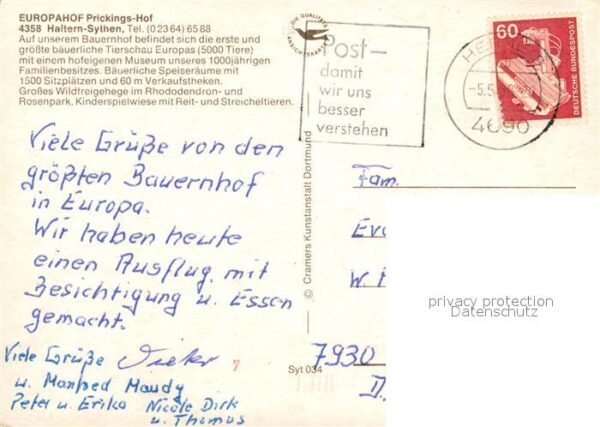 EUROPAHOF Prickings-Hof
4358 Haltern-Sythen, Tel. (02364) 6588
Auf unserem Bauernhof befindet sich die erste und
größte bäuerliche Tierschau Europas (5000 Tiere)
mit einem hofeigenen Museum unseres 1000jährigen
Familienbesitzes. Bäuerliche Speiseräume mit
1500 Sitzplätzen und 60 m Verkaufstheken.
Großes Wildfreigehege im Rhododendron- und
Rosenpark, Kinderspielwiese mit Reit- und Streicheltieren.
Viele Grüße von den
größten Bauernhof
in Europa.
Wir haben heute
einen Ausflug mit
Besichtigung u. Essen
gemacht.
Viele Grüße Dieter
u. Manfred Maudy
Peter u. Erika Nicole Dirk
u. Thomas
7
Syt 034
© Cramers Kunstanstalt Dortmund
DIE QUALITÄTS
ANSICHTSKARTE
Post –
damit
wir uns
besser
verstehen
-5.5.
4690
60
DEUTSCHE BUNDESPOST
Fam.
W.
7930
privacy protection
Datenschutz